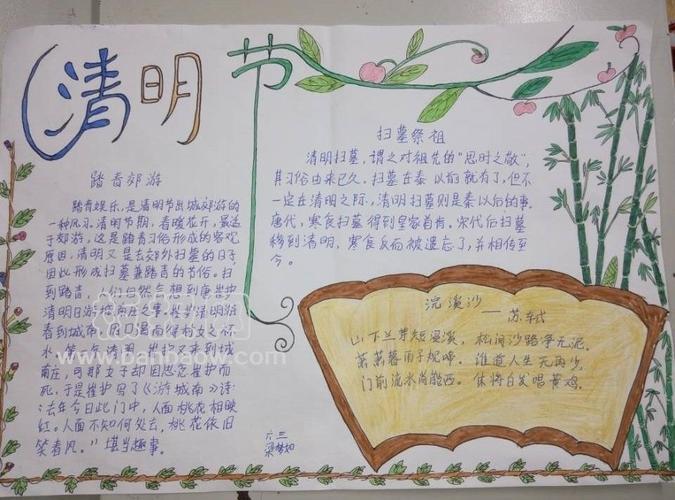 清明节
踏青郊游
踏青娱乐，是清明节出城郊游的
一种风习。清明节期，春暖花开，最适
于郊游，这是踏青习俗形成的客观
原因，清明又是去郊外扫墓的日子
因此形成扫墓兼踏青的节俗。扫
到踏青，人们自然会想到唐崔护
清明日游
看到城南，
水
庄，可那女子却因思念崔护而
死，于是崔护写了《游城南》诗
：去年今日此门中，人面桃花相映
红。人面不知何处去，桃花依旧
笑春风。"堪当趣事。
扫墓祭祖
清明扫墓，谓之对祖先的"思时之敬"，
其习俗由来已久。扫墓在秦以前就有了，但不
一定在清明之际，清明扫墓则是秦以后的事。
唐代，寒食扫墓得到皇家首肯。宋代后扫墓
移到清明，寒食反而被遗忘了，并相传至
今。
浣溪沙
——苏轼
山下兰芽短浸溪，松间沙路净无泥，
萧萧暮雨子规啼。谁道人生无再少，
门前流水尚能西。休将白发唱黄鸡。
六三
www.banbaow.com